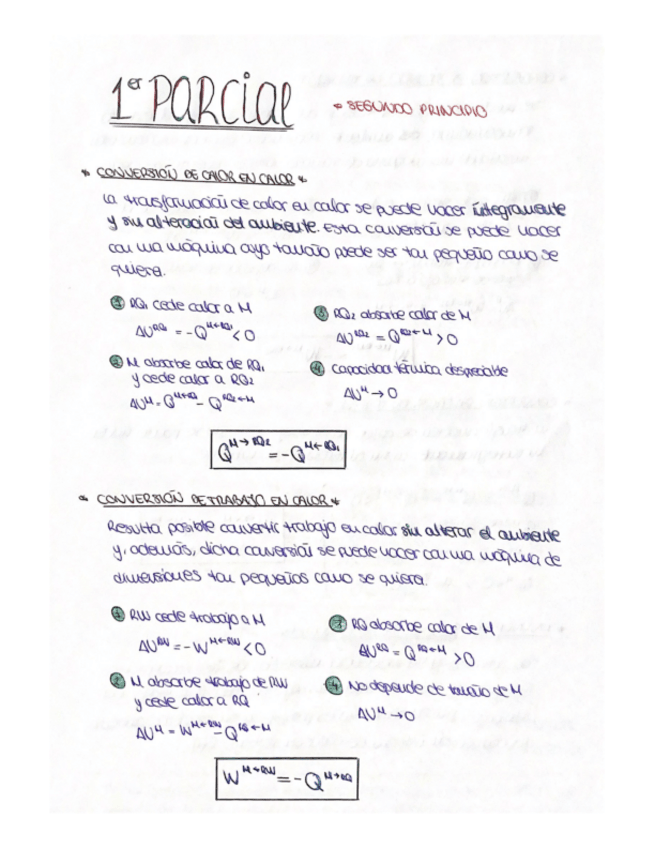 1er PARCIAL
• SEGUNDO PRINCIPIO
* CONVERSIÓN DE CALOR EN CALOR *
La transformación de calor en calor se puede hacer íntegramente
y sin alteración del ambiente. Esta conversión se puede hacer
con una máquina cuyo tamaño puede ser tan pequeño como se
quiera.
① RQ₁ cede calor a M
ΔU^RQ₁ = -Q^M←RQ₁ < 0
② M absorbe calor de RQ₁
y cede calor a RQ₂
ΔU^M = Q^M←RQ₁ - Q^RQ₂←M
③ RQ₂ absorbe calor de M
ΔU^RQ₂ = Q^RQ₂←M > 0
④ Capacidad térmica despreciable
ΔU^M → 0
Q^M→RQ₂ = -Q^M←RQ₁
* CONVERSIÓN DE TRABAJO EN CALOR *
Resulta posible convertir trabajo en calor sin alterar el ambiente
y, además, dicha conversión se puede hacer con una máquina de
dimensiones tan pequeñas como se quiera.
① RW cede trabajo a M
ΔU^RW = -W^M←RW < 0
② M absorbe trabajo de RW
y cede calor a RQ
ΔU^M = W^M←RW - Q^RQ←M
③ RQ absorbe calor de M
ΔU^RQ = Q^RQ←M > 0
④ No depende de tamaño de M
ΔU^M → 0
W^M←RW = -Q^M→RQ